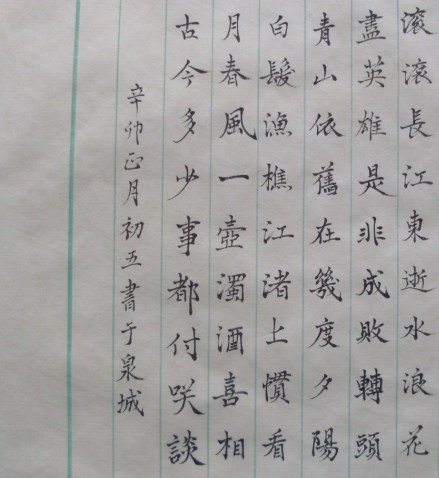 滚滚長江東逝水浪花
盡英雄是非成敗轉頭
青山依舊在幾度夕陽
白髮漁樵江渚上慣看
月春風一壺濁酒喜相
古今多少事都付咲談
辛卯正月初五書于泉城